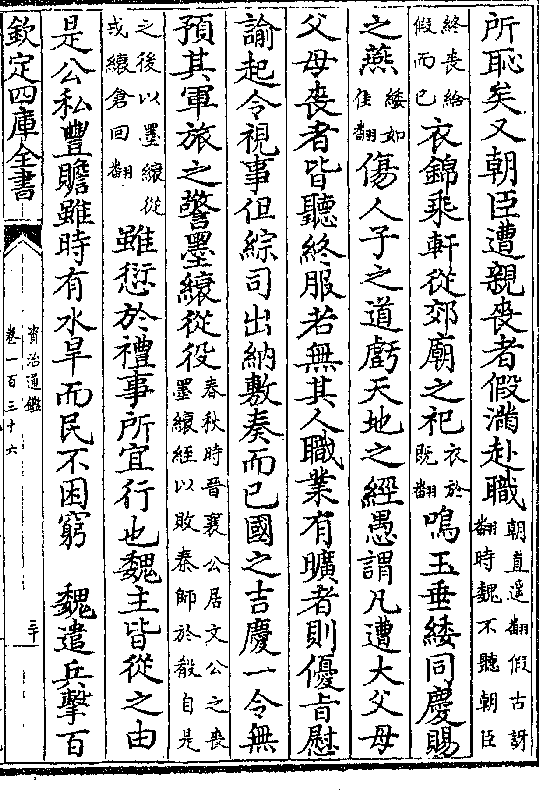 所恥矣又朝臣遭親喪者假滿赴職朝直遥翻假古訝翻時魏不聽朝臣
終喪給假而已衣錦乘軒從郊廟之祀衣於既翻鳴玉垂緌同慶賜
之燕緌如佳翻傷人子之道虧天地之經愚謂凡遭大父母
父母喪者皆聽終服若無其人職業有曠者則優旨慰
諭起令視事但綜司出納敷奏而已國之吉慶一令無
預其軍旅之警墨縗從役春秋時晉襄公居文公之喪墨縗絰以敗秦師於殽自是
之後以墨縗從戎縗倉回翻雖愆於禮事所宜行也魏主皆從之由
是公私豐贍雖時有水旱而民不困窮　魏遣兵擊百
欽定四庫全書
資治通鑑
卷一百三十六
三十